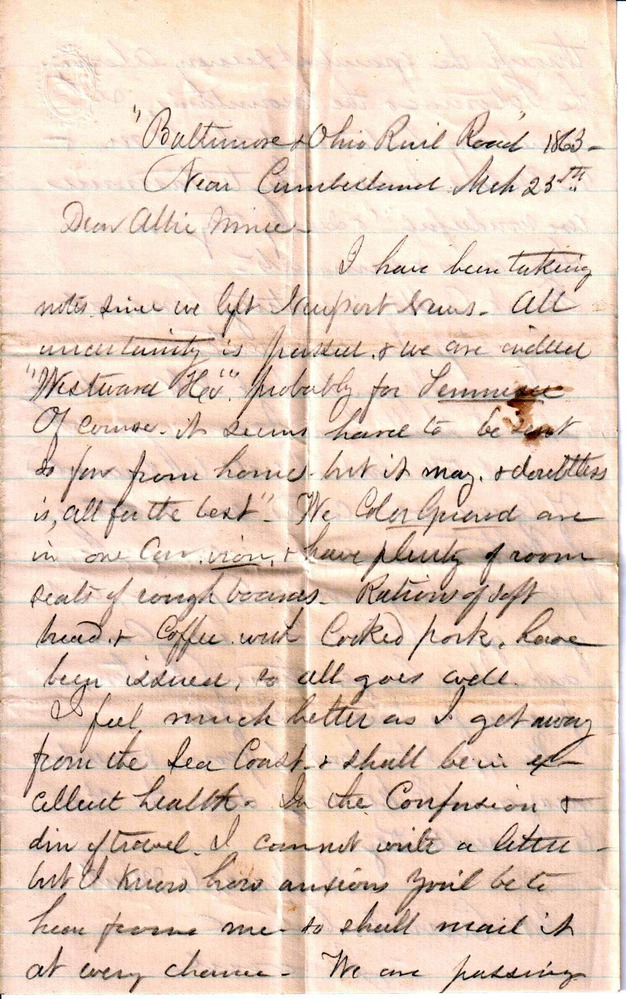 "Baltimore & Ohio Rail Road" 1863-
Near Cumberland Mch 25th
Dear Allie Mine-
I have been taking
notes since we left Newport News- All
uncertainty is passed, & we are indeed
"Westward Ho" probably for Tennessee
Of course- it seems hard to be sent
so far from home- but it may, & doubtless
is, "all for the best"- We Color Guard are
in one Car, iron, & have plenty of room
seats of rough boards- Rations of soft
bread, & Coffee with Cooked pork, have
been issued, so all goes well.
I feel much better as I get away
from the Sea Coast- & shall be in ex-
cellent health. In the Confusion &
din of travel- I cannot write a letter-
but I know how anxious you'll be to
hear from me- so shall mail it
at every chance- We are passing